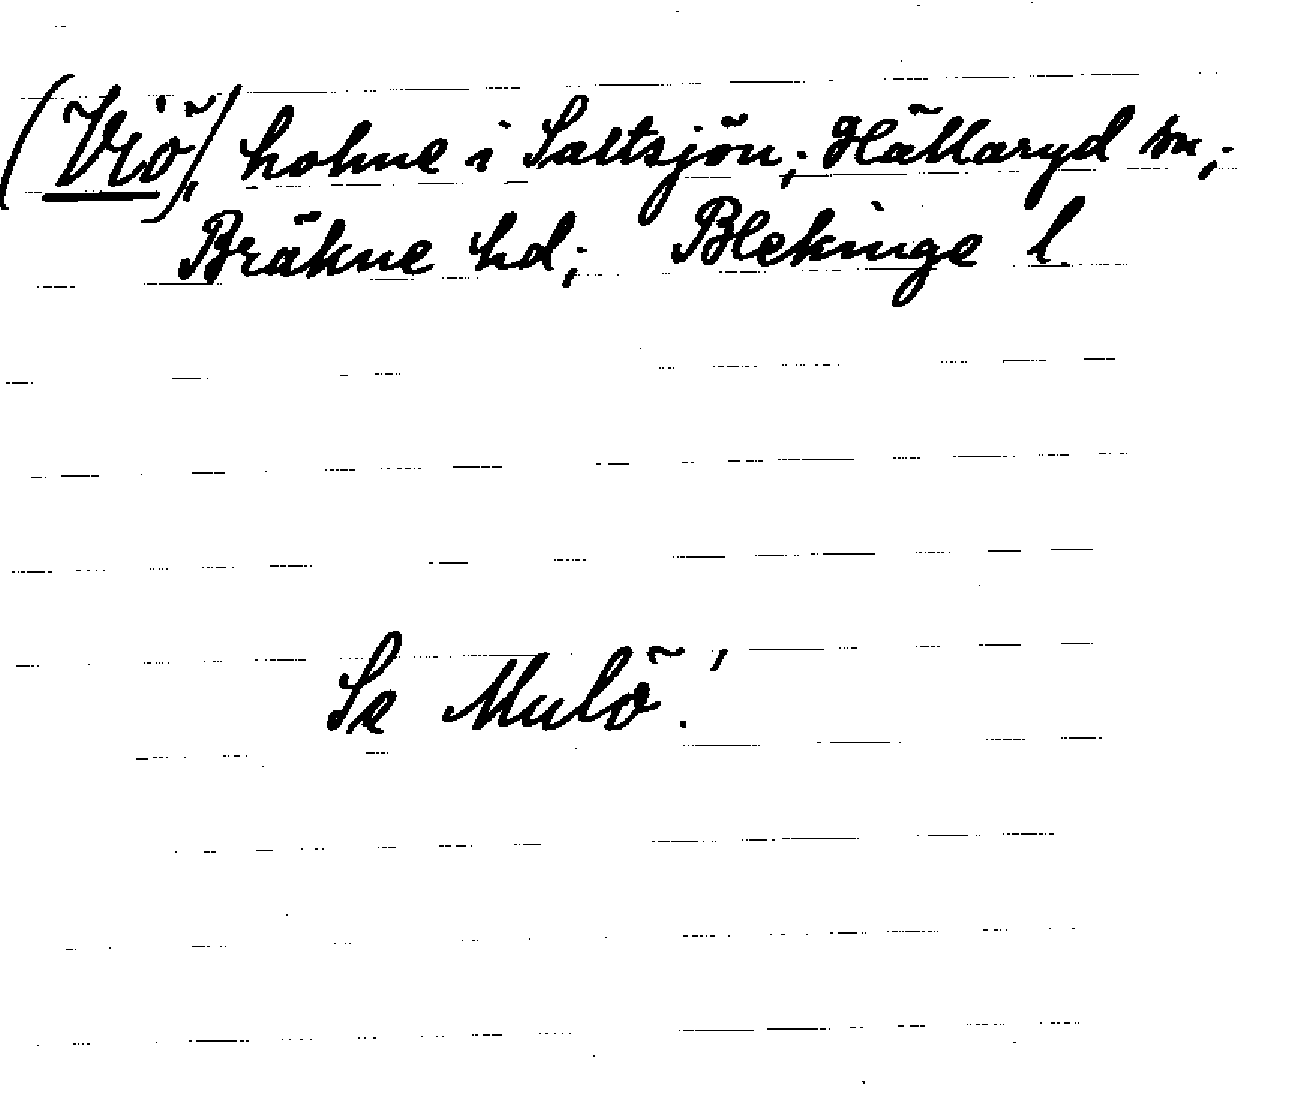 (Viö), holme i Saltsjön; Hällaryd sn;
Bräkne hd; Blekinge l.
Se Mulö.